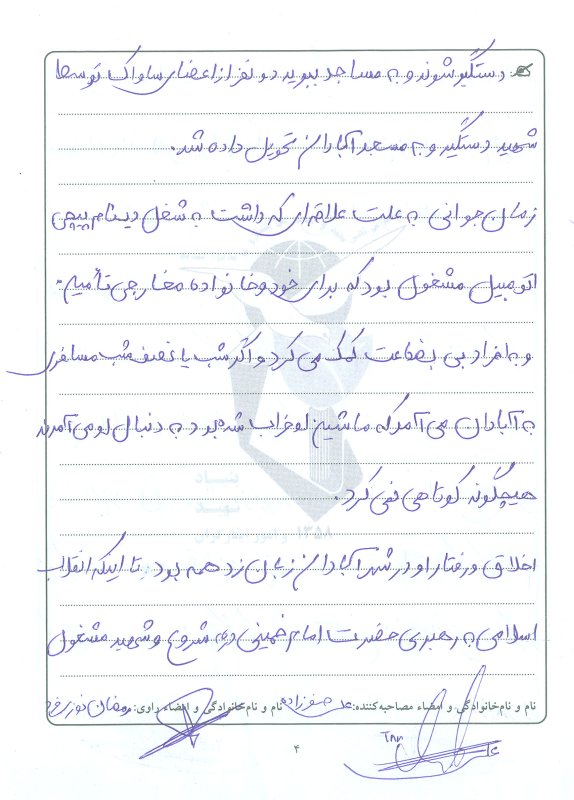 دستگیر شوند و به مساجد ببرید دو نفر از اعضای ساواک توسط
شهید دستگیر و به مسجد آبادان تحویل داده شد.
زمان جوانی به علت علاقه‌ای که داشت به شغل دینام پیچی
اتومبیل مشغول بود که برای خود و خانواده مخارجی تأمین
و به افراد بی بضاعت کمک می کرد و اگر شب یا نصف شب مسافری
به آبادان می آمد که ماشین او خراب شده بود به دنبال او می آمدند
هیچگونه کوتاهی نمی کرد.
اخلاق و رفتار او در شهر آبادان زبان زد همه بود. تا اینکه انقلاب
اسلامی به رهبری حضرت امام خمینی (ره) شروع و شهید مشغول
نام و نام‌خانوادگی و امضاء مصاحبه‌کننده: علی صفرزاده نام و نام‌خانوادگی و امضاء راوی: رمضان
۴